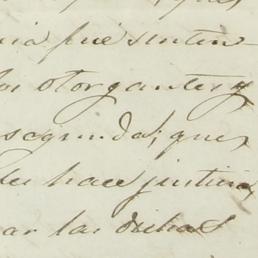 ria fué senten-
los otorgantes y
segunda; que
les hace justicia
ar las dichas